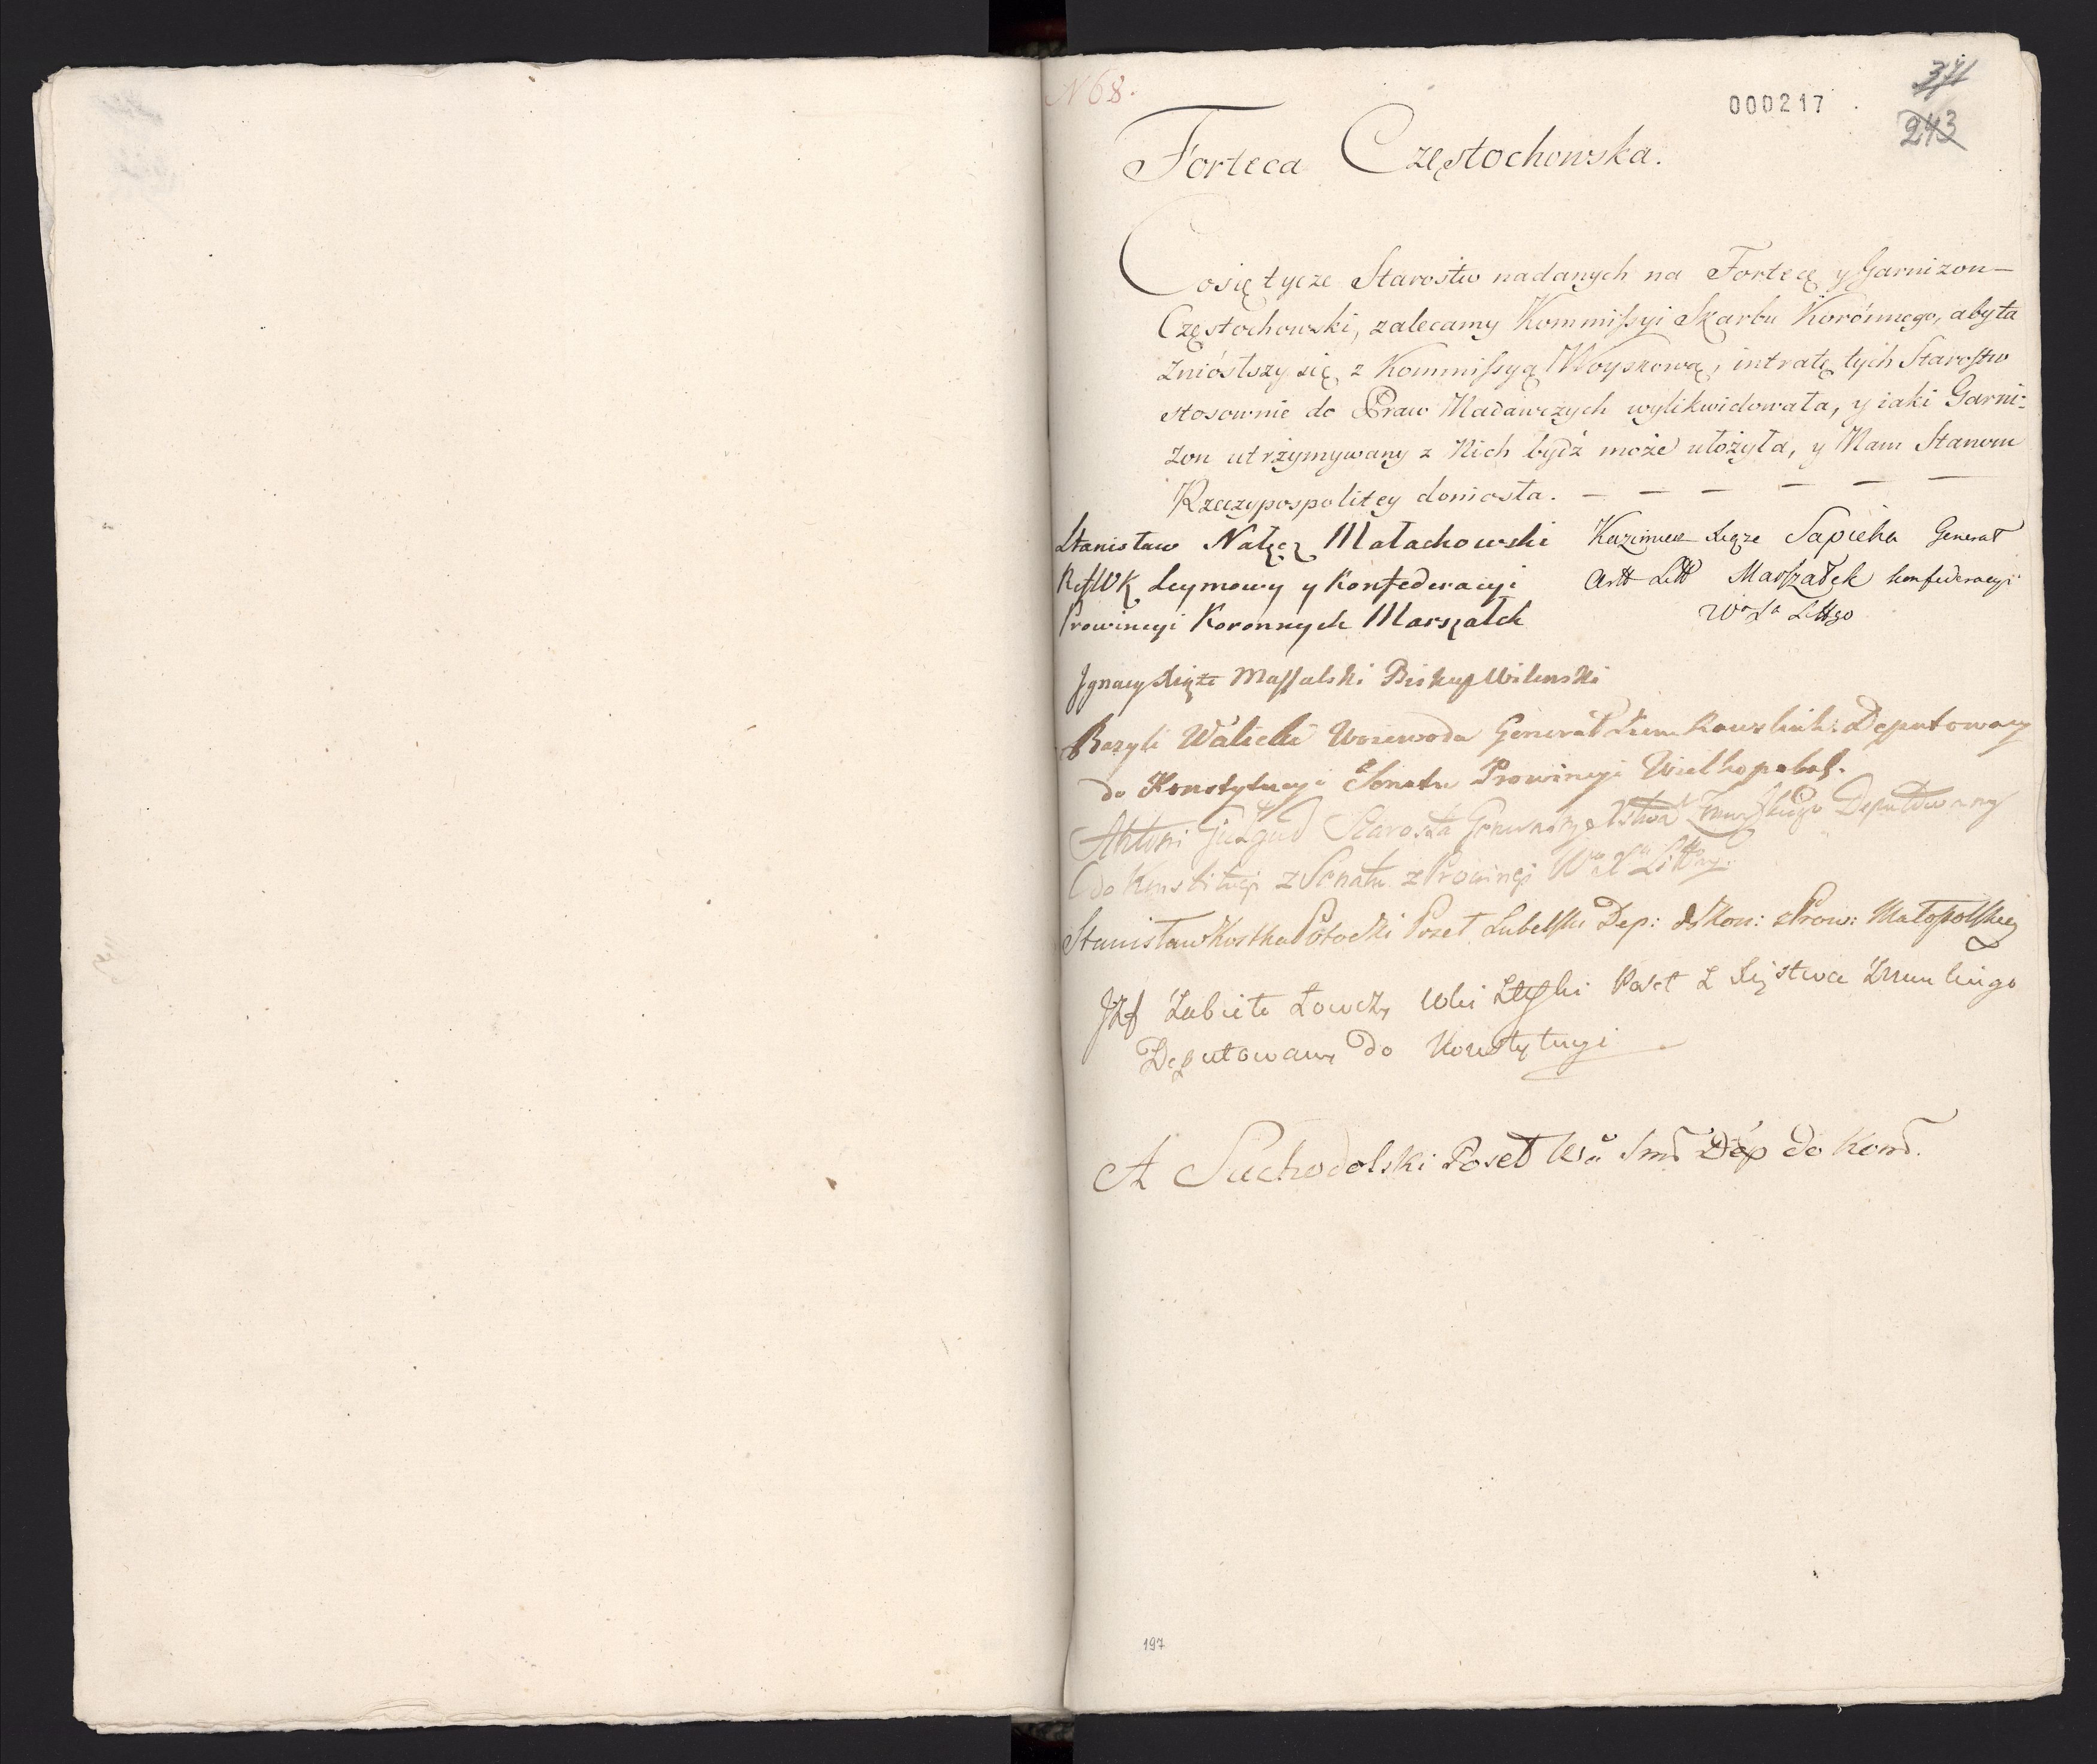 N 68.
000217
371
243
Forteca Częstochowska.
Co się tycze Starostw nadanych na Fortecę y Garnizon—
Częstochowski, zalecamy Kommissyi Skarbu Korónnego, aby ta
Znióstszy się z Kommissyą Woyskową, intratę tych Starostw
stosownie do Praw Nadawczych wylikwidowała, y iaki Garni-
zon utrzymywany z Nich bydź może ułożyła, y Nam Stanom
Rzeczypospolitey doniosła. — — — — — —
Stanisław Nałęcz Małachowski
R WK Seymowy y Konfederacyi
Prowincyi Koronnych Marszałek
Kazimierz Xiąże Sapieha Generał
Artt Litt Marszałek konfederacyi
W° X° Litt°
Ignacy Xiąże Massalski Biskup Wilenski
Bazyli Walicki Woiewoda Generał Ziem Rawskich Deputowany
do Konstytucyi z Senatu Prowincyi Wielkopolsk.
Antoni Giełgud Starosta Generalny Xtwa Zmuydzkiego Deputowany
do Konstitucji z Senatu z Prowincji W° X° Litt°
Stanisław Kostka Potocki Poseł Lubelski Dep: do Kon: z Prow: Małopolskiey
Jzf Zabiełło Łowczy Wki Littski Poseł z Xięstwa Zmudzkiego
Deputowany do Konstytucyi
A Suchodolski Poseł Smo Dep do Kons.
197